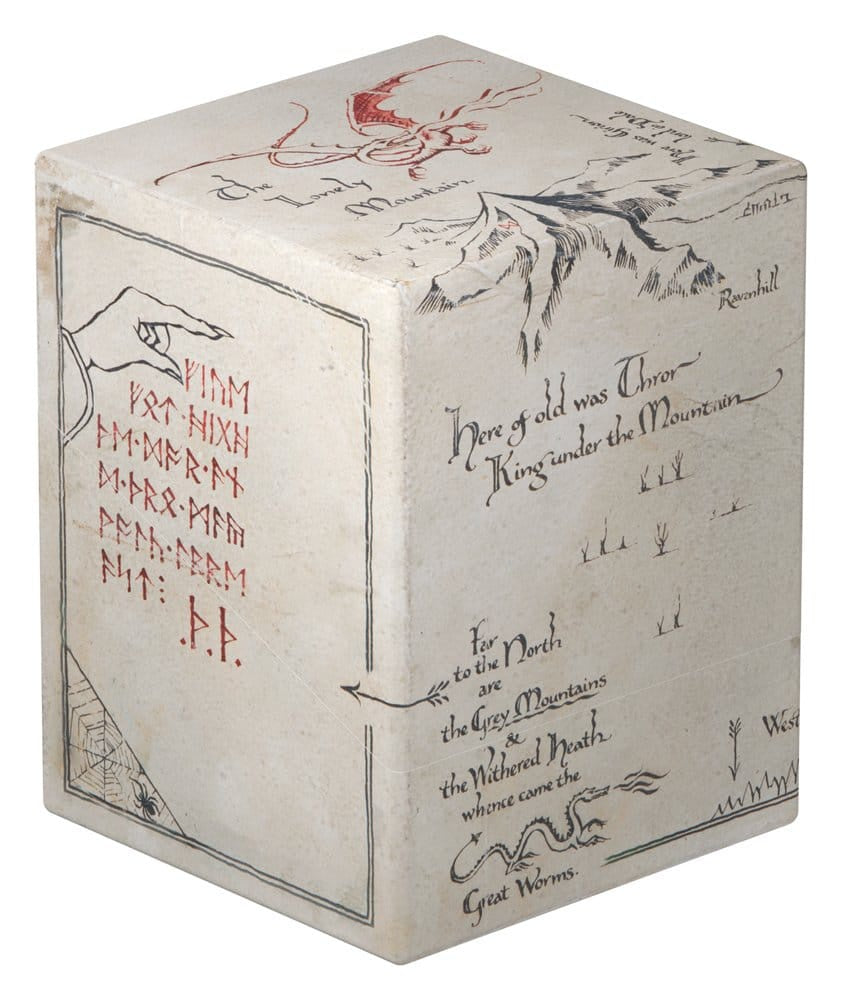 The Lonely Mountain
Here was Girion
Lord in Dale
ᚠᛁᚢᛖ
ᚠᛟᛏ·ᚻᛁᚷᚻ
ᚦᛖ·ᛞᚩᚱ·ᚪᚾ
ᛞ·ᚦᚱᛟ·ᛗᚪᚣ
ᚹᚪᛚᚳ·ᚪᛒᚱᛖ
ᚪᛋᛏ⁝
.ᚦ.ᚦ.
Ravenhill
Here of old was Thror
King under the Mountain
Far
to the North
are
the Grey Mountains
&
the Withered Heath
whence came the
Great Worms.
West